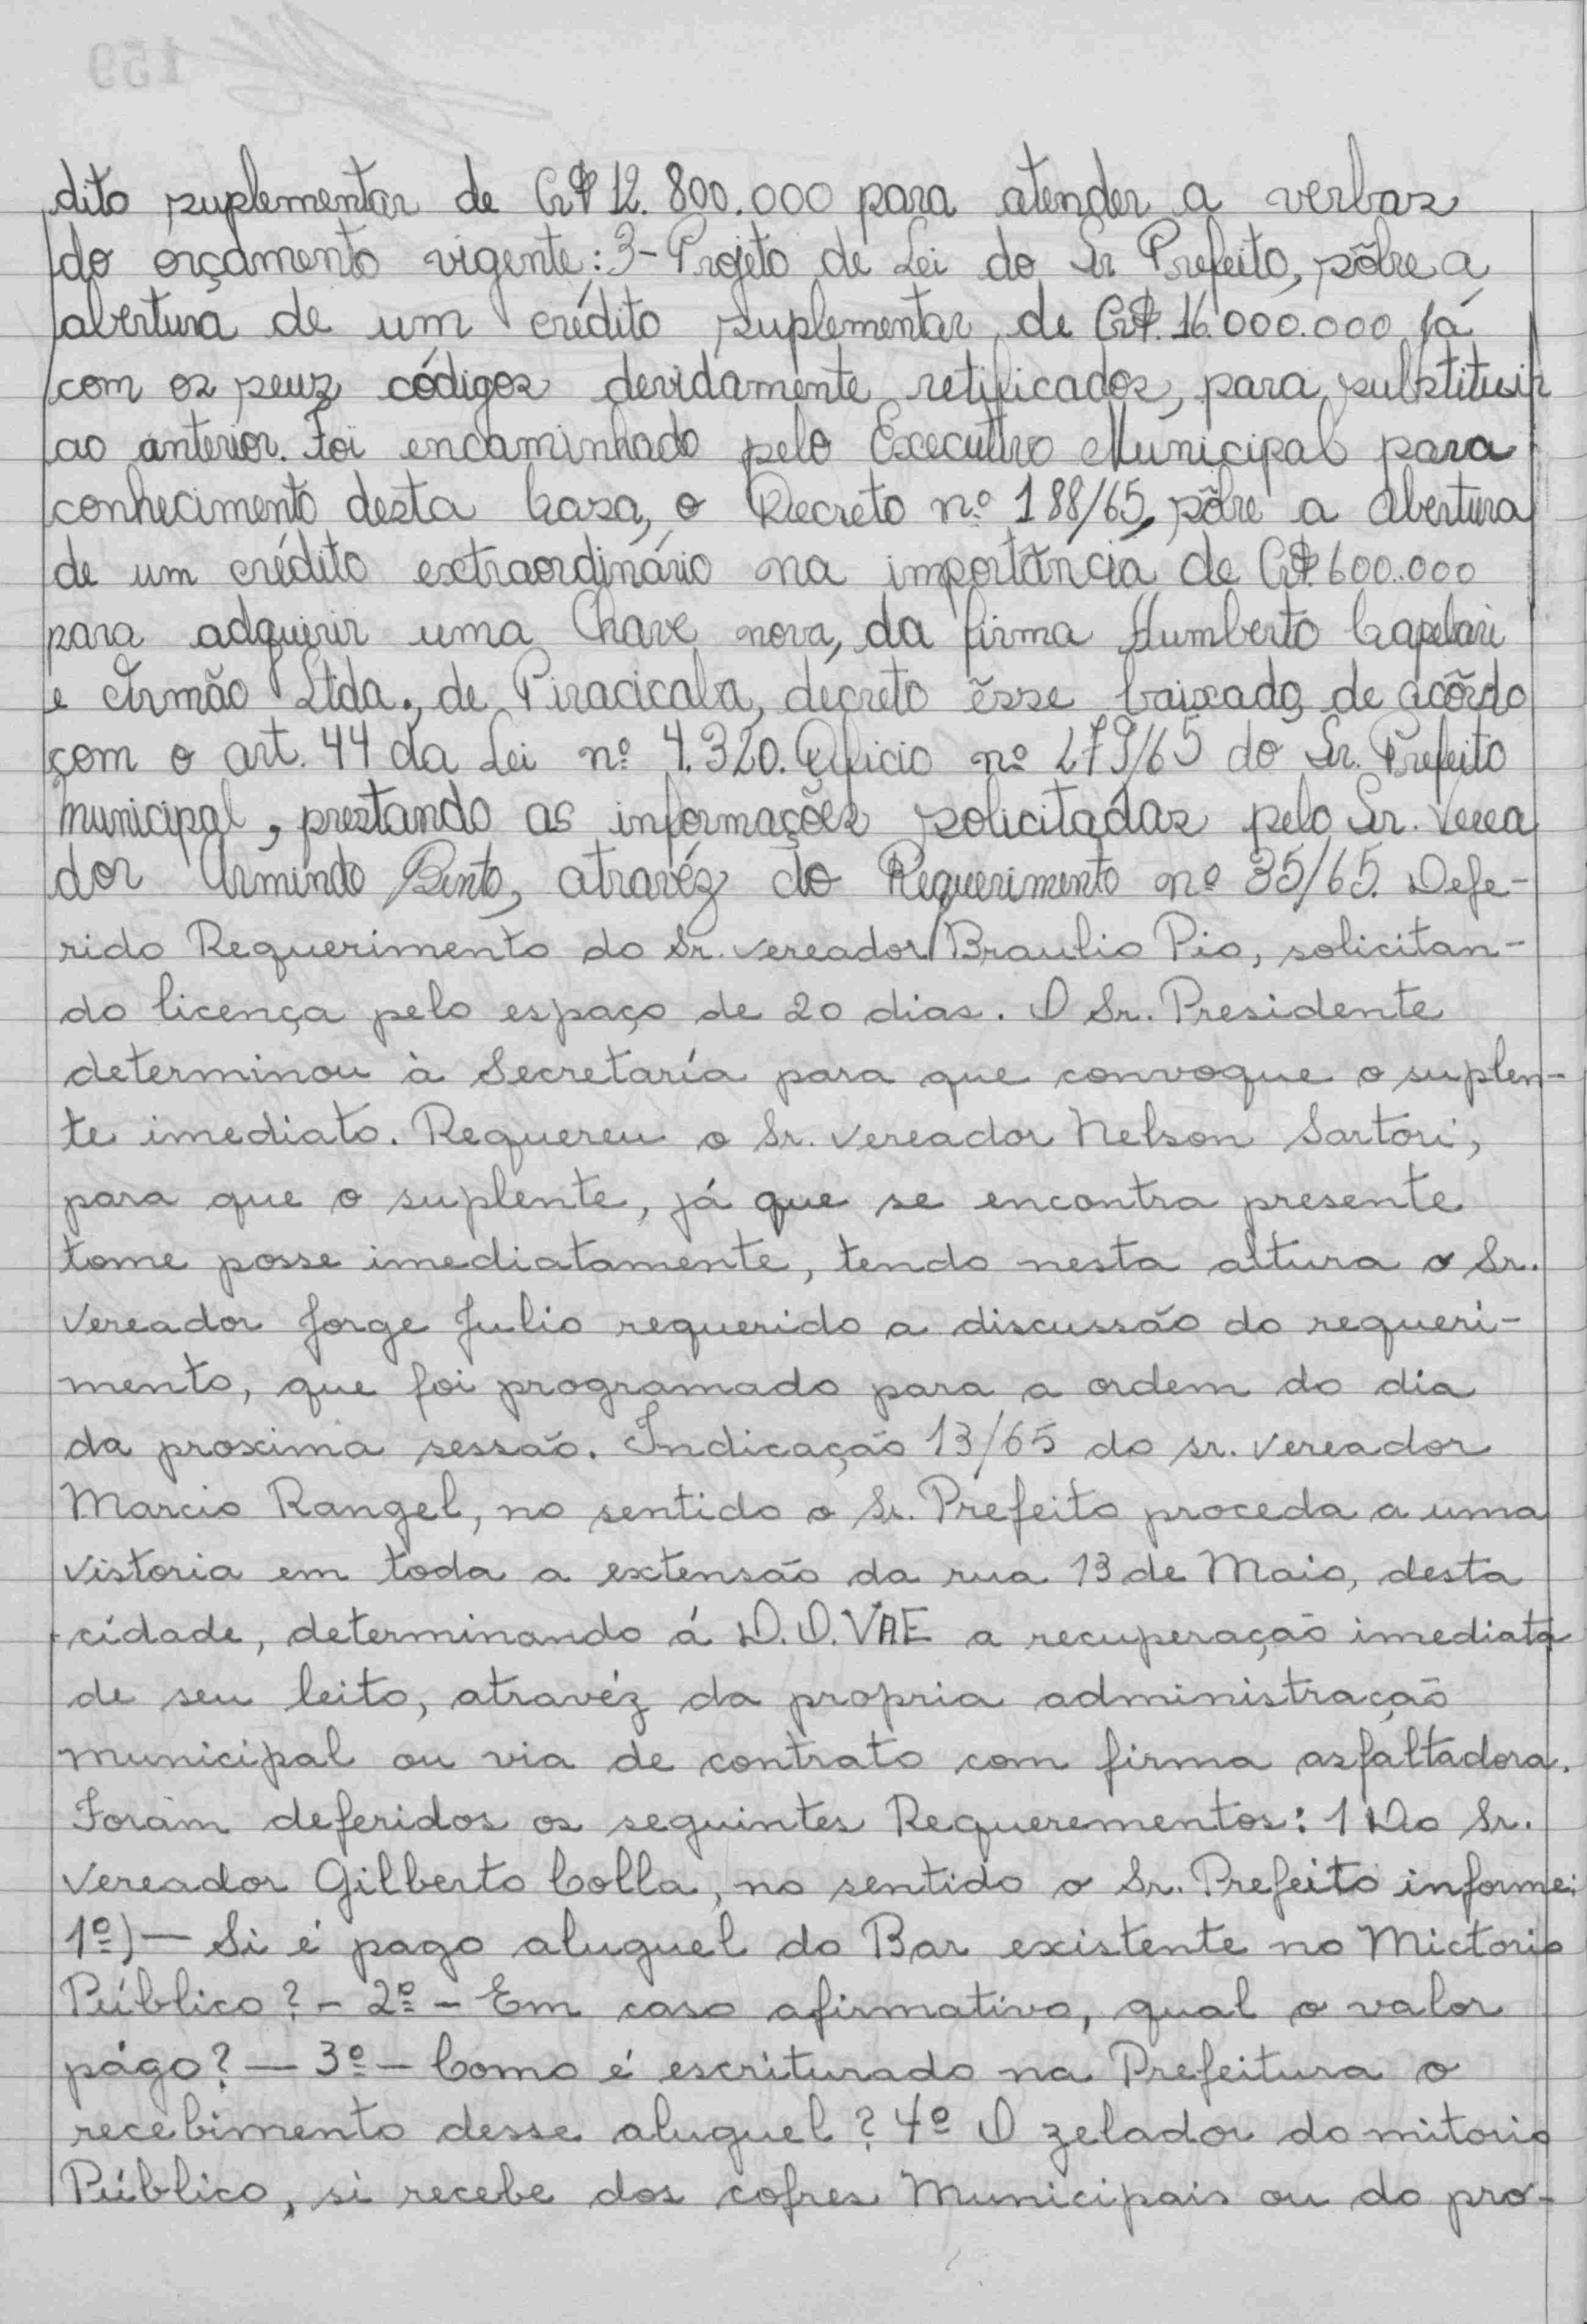 dito suplementar de Cr$ 12.800.000 para atender a verbas
do orçamento vigente: 3- Projeto de Lei do Sr Prefeito, sôbre a
abertura de um crédito suplementar de Cr$. 16.000.000 já
com os seus códigos devidamente retificados, para substituir
ao anterior. Foi encaminhado pelo Executivo Municipal para
conhecimento desta Casa, o Decreto nº 188/65, sôbre a abertura
de um crédito extraordinário na importância de Cr$. 600.000
para adquirir uma Chave nova, da firma Humberto Capelari
e Irmão Ltda., de Piracicaba, decreto êsse baixado de acôrdo
com o art. 44 da Lei nº 4.320. Oficio nº 279/65 do Sr. Prefeito
Municipal, prestando as informações solicitadas pelo Sr. Verea
dor Armindo Bento, atravéz do Requerimento nº 35/65. Defe-
rido Requerimento do Sr. vereador Braulio Pio, solicitan-
do licença pelo espaço de 20 dias. O Sr. Presidente
determinou à Secretaría para que convoque o suplen-
te imediato. Requereu o Sr. vereador Nelson Sartori,
para que o suplente, já que se encontra presente
tome posse imediatamente, tendo nesta altura o Sr.
Vereador Jorge Julio requerido a discussão do requeri-
mento, que foi programado para a ordem do dia
da proxima sessão. Indicação 13/65 do sr. vereador
Marcio Rangel, no sentido o Sr. Prefeito proceda a uma
vistoria em toda a extensão da rua 13 de Maio, desta
cidade, determinando á D.O.VAE a recuperação imediata
de seu leito, atravéz da propria administração
municipal ou via de contrato com firma asfaltadora.
Foram deferidos os seguintes Requerementos: 1 Do Sr.
Vereador Gilberto Colla, no sentido o Sr. Prefeito informe:
1º) — Si é pago aluguel do Bar existente no Mictorio
Público? - 2º - Em caso afirmativo, qual o valor
págo? — 3º - Como é escriturado na Prefeitura o
recebimento desse aluguel? 4º O zelador do mitorio
Público, si recebe dos cofres Municipais ou do pro-